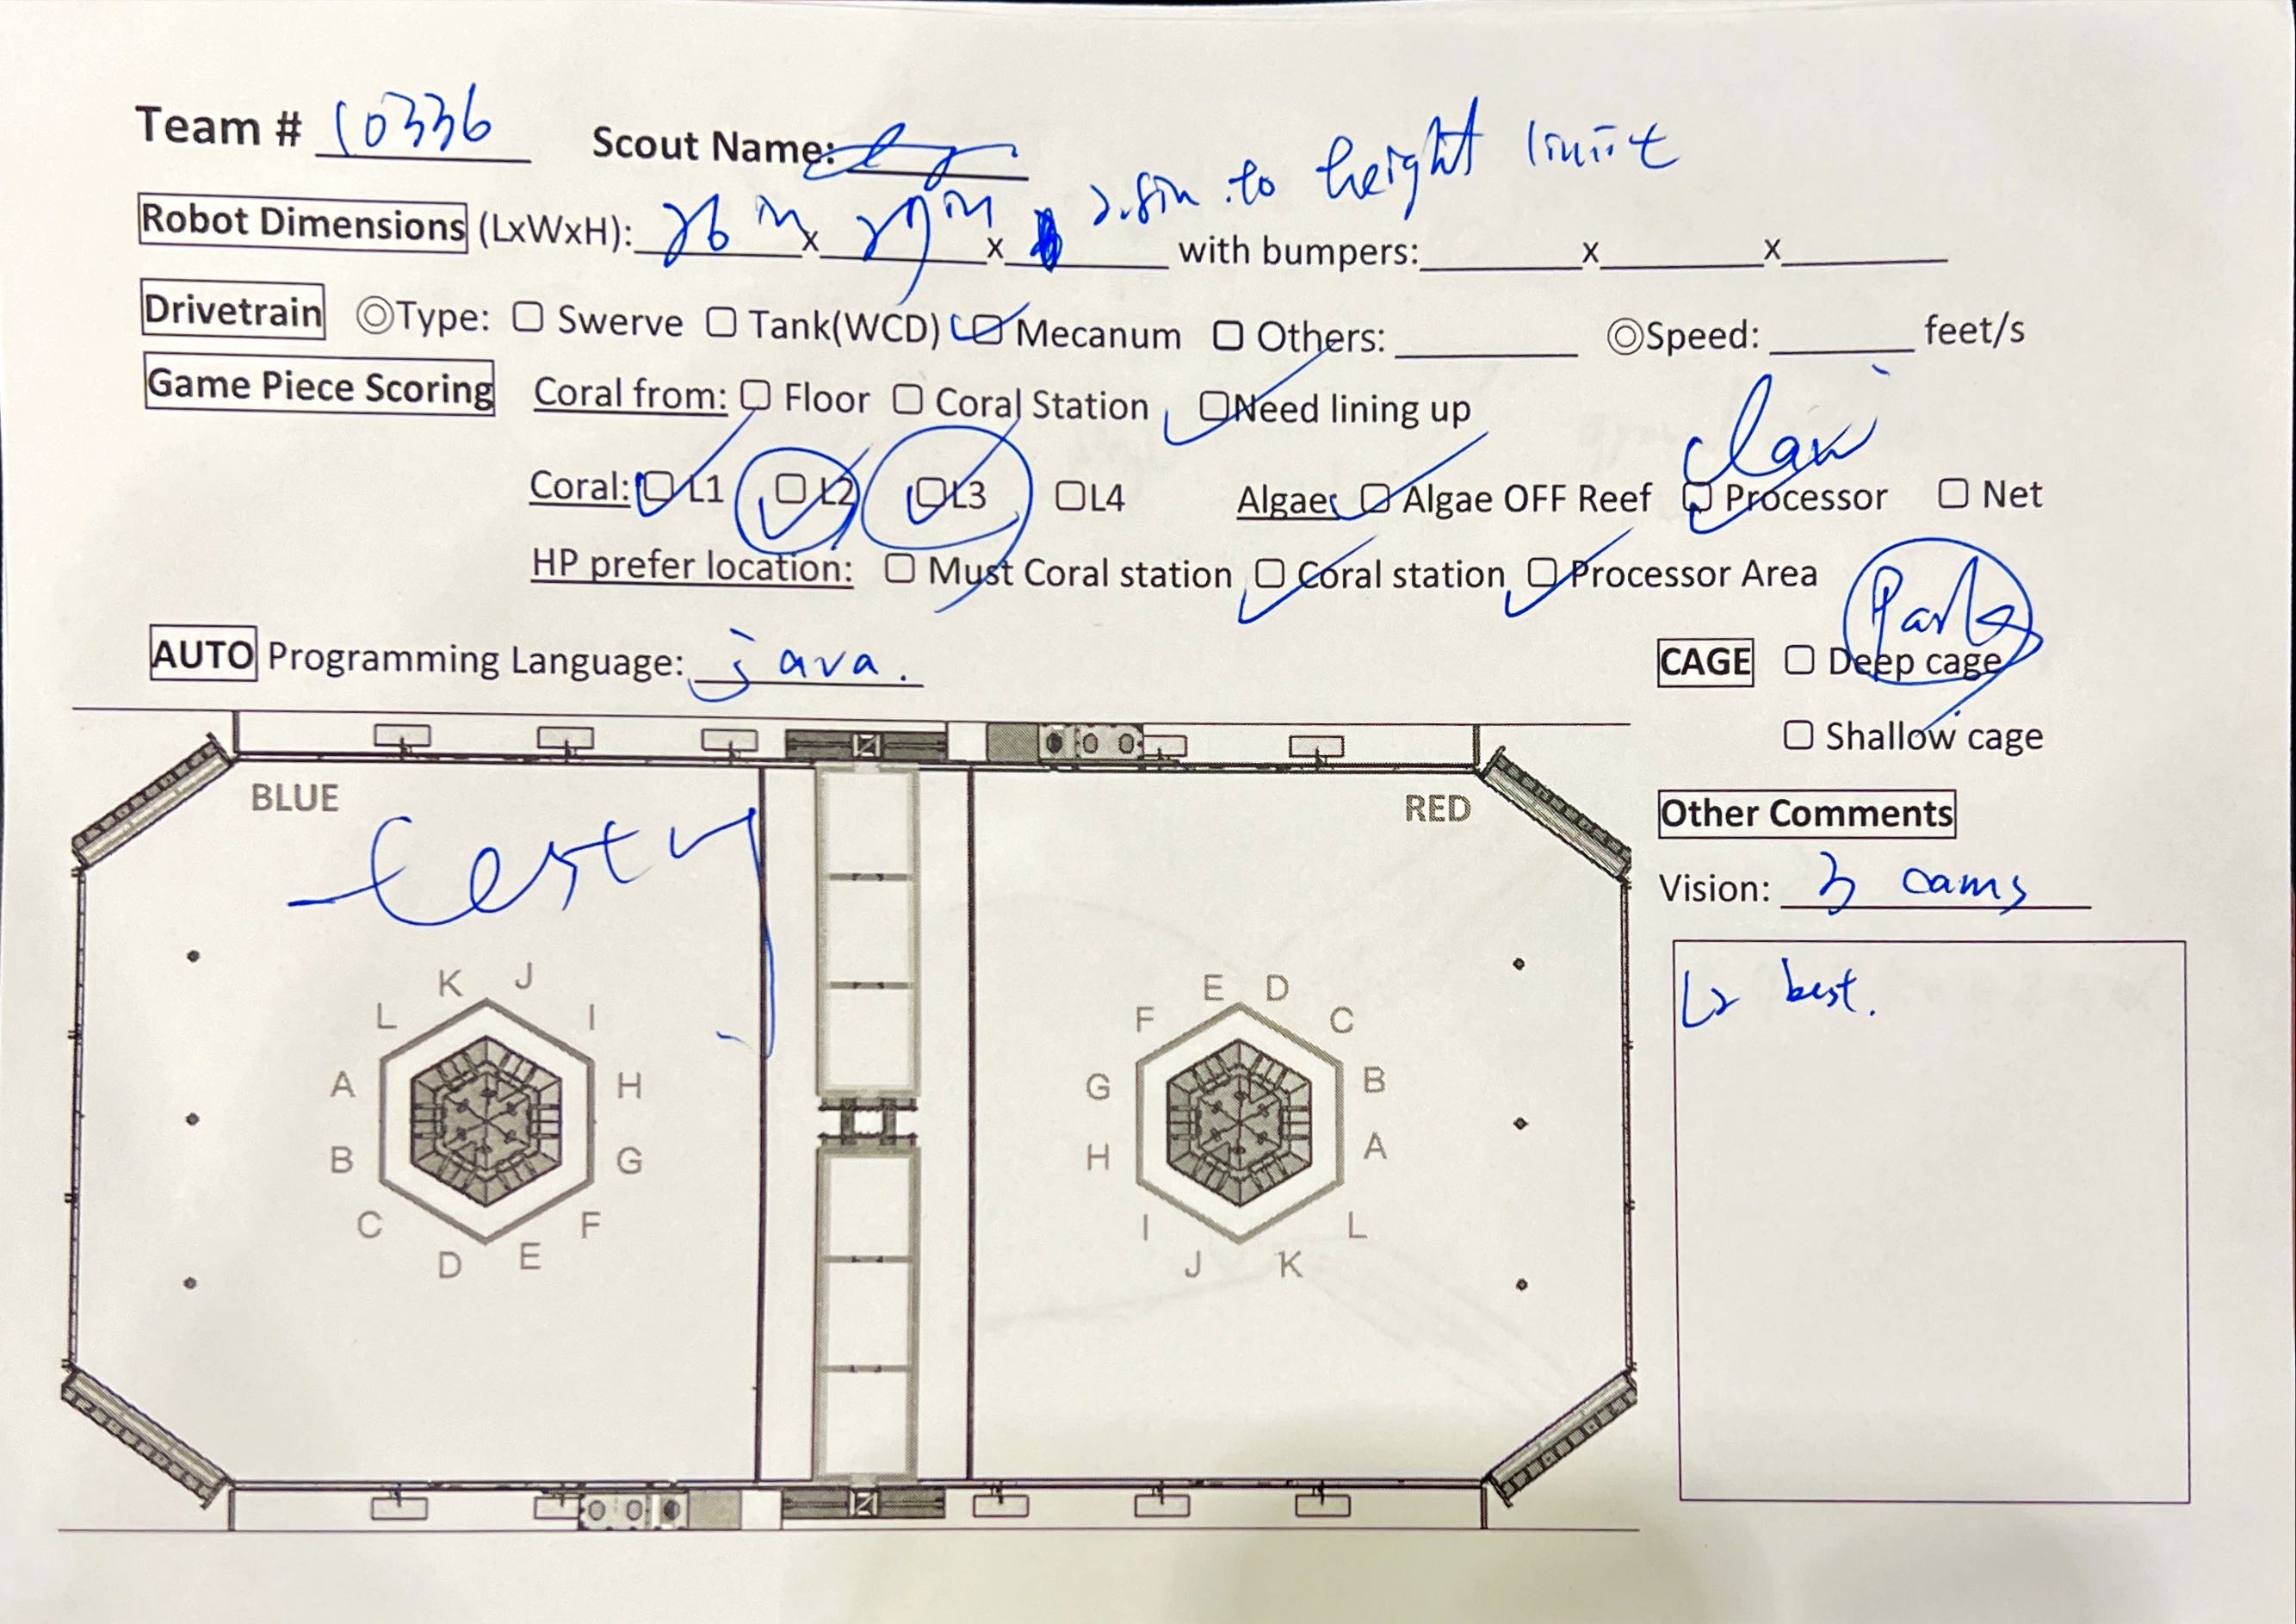 Team # 10336 Scout Name:
to height limit
Robot Dimensions (LxWxH): 26 in x x with bumpers: x x
Drivetrain ◎Type: ☐ Swerve ☐ Tank(WCD) ☑ Mecanum ☐ Others: ◎Speed: feet/s
Game Piece Scoring Coral from: ☐ Floor ☐ Coral Station ☑ Need lining up
claw
Coral: ☑ L1 ☑ L2 ☑ L3 ☐ L4 Algae: ☑ Algae OFF Reef ☑ Processor ☐ Net
HP prefer location: ☐ Must Coral station ☑ Coral station ☑ Processor Area
Park
AUTO Programming Language: java.
CAGE ☐ Deep cage
☐ Shallow cage
BLUE
RED
Other Comments
Vision: 3 cams
L2 best.
K J
L I
A H
B G
C F
D E
E D
F C
G B
H A
I L
J K